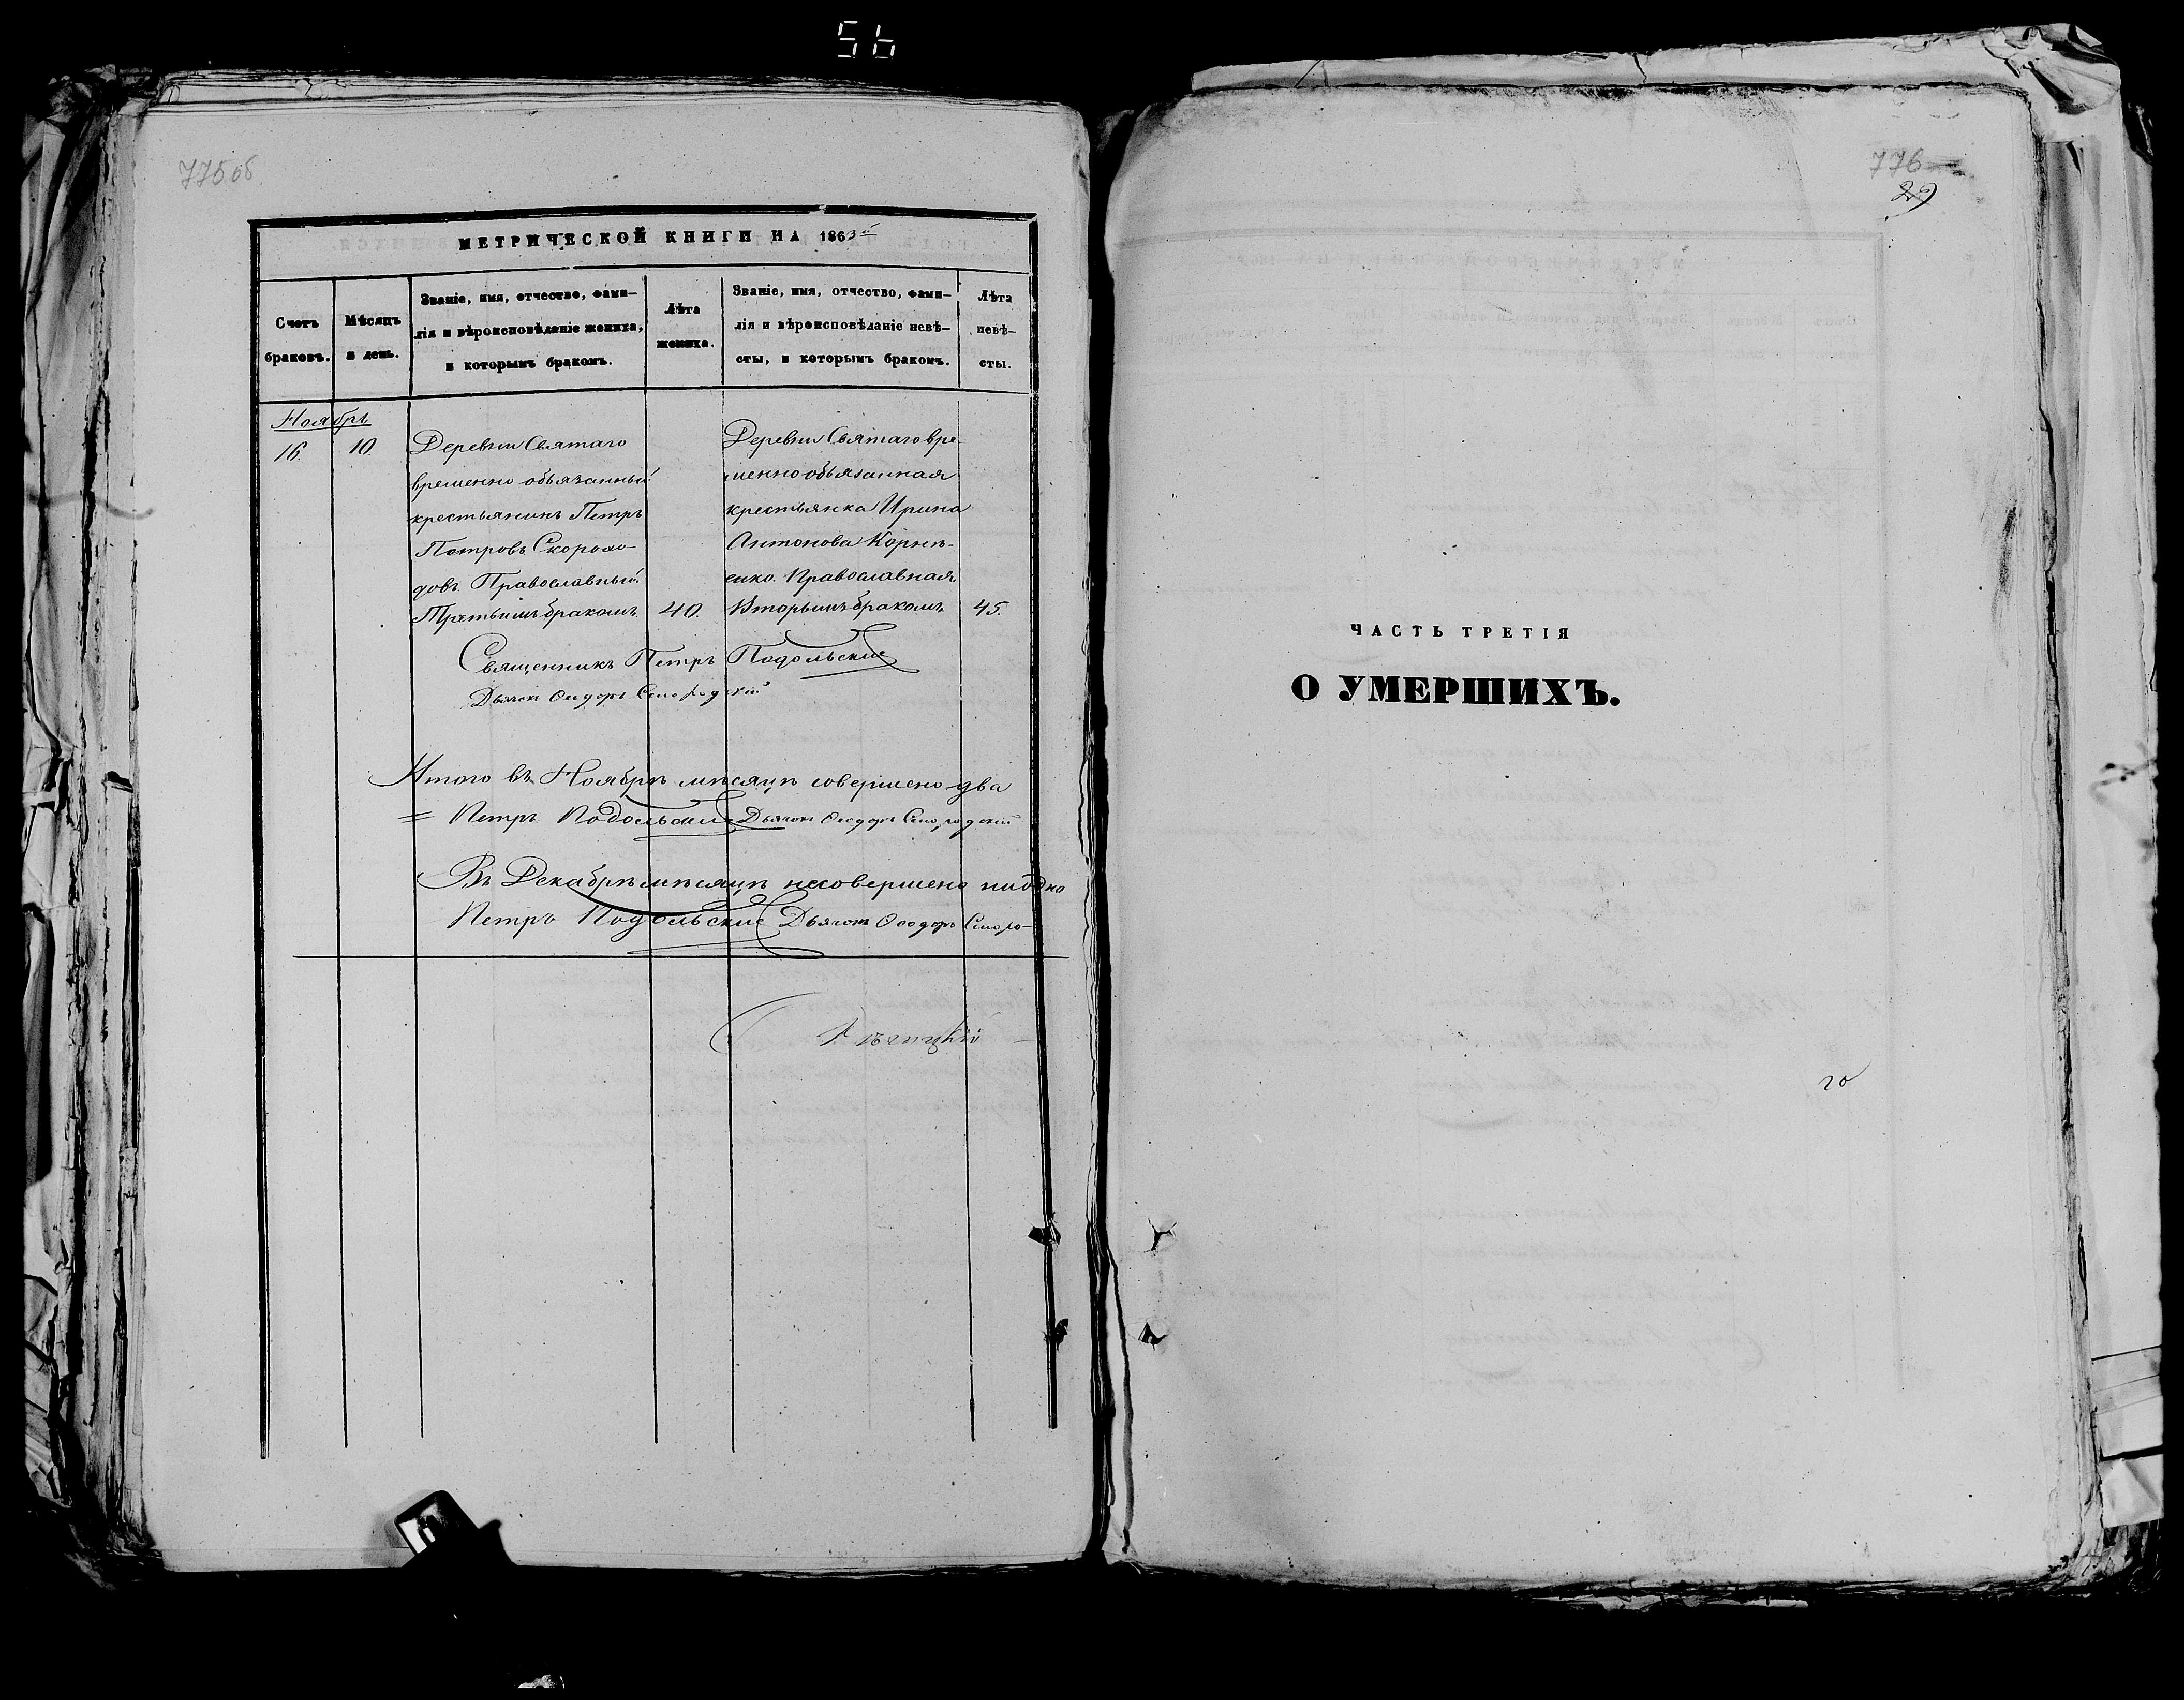 56
775об
МЕТРИЧЕСКОЙ КНИГИ НА 1863й
Счетъ браковъ.
Мѣсяцъ и день.
Званіе, имя, отчество, фами-
лія и вѣроисповѣданіе жениха,
и которымъ бракомъ.
Лѣта жениха.
Званіе, имя, отчество, фами-
лія и вѣроисповѣданіе невѣ-
сты, и которымъ бракомъ.
Лѣта невѣ-
сты.
Ноябрь
16. 10.
Деревни Святаго
временно обязанный
крестьянинъ Петръ
Петровъ Скорохо-
довъ. Православный.
Третьимъ бракомъ. 40.
Деревни Святаго вре-
менно обязанная
крестьянка Ирина
Антонова Корнѣ-
енко. Православная.
Вторымъ бракомъ. 45.
Священникъ Петръ Подольскій
Дьячокъ Ѳеодоръ
Итого въ Ноябрѣ мѣсяцѣ совершено два
Петръ Подольскій Дьячокъ Ѳеодоръ
Въ Декабрѣ мѣсяцѣ несовершено ниодно
Петръ Подольскій Дьячокъ Ѳеодоръ
776
29
ЧАСТЬ ТРЕТІЯ
О УМЕРШИХЪ.